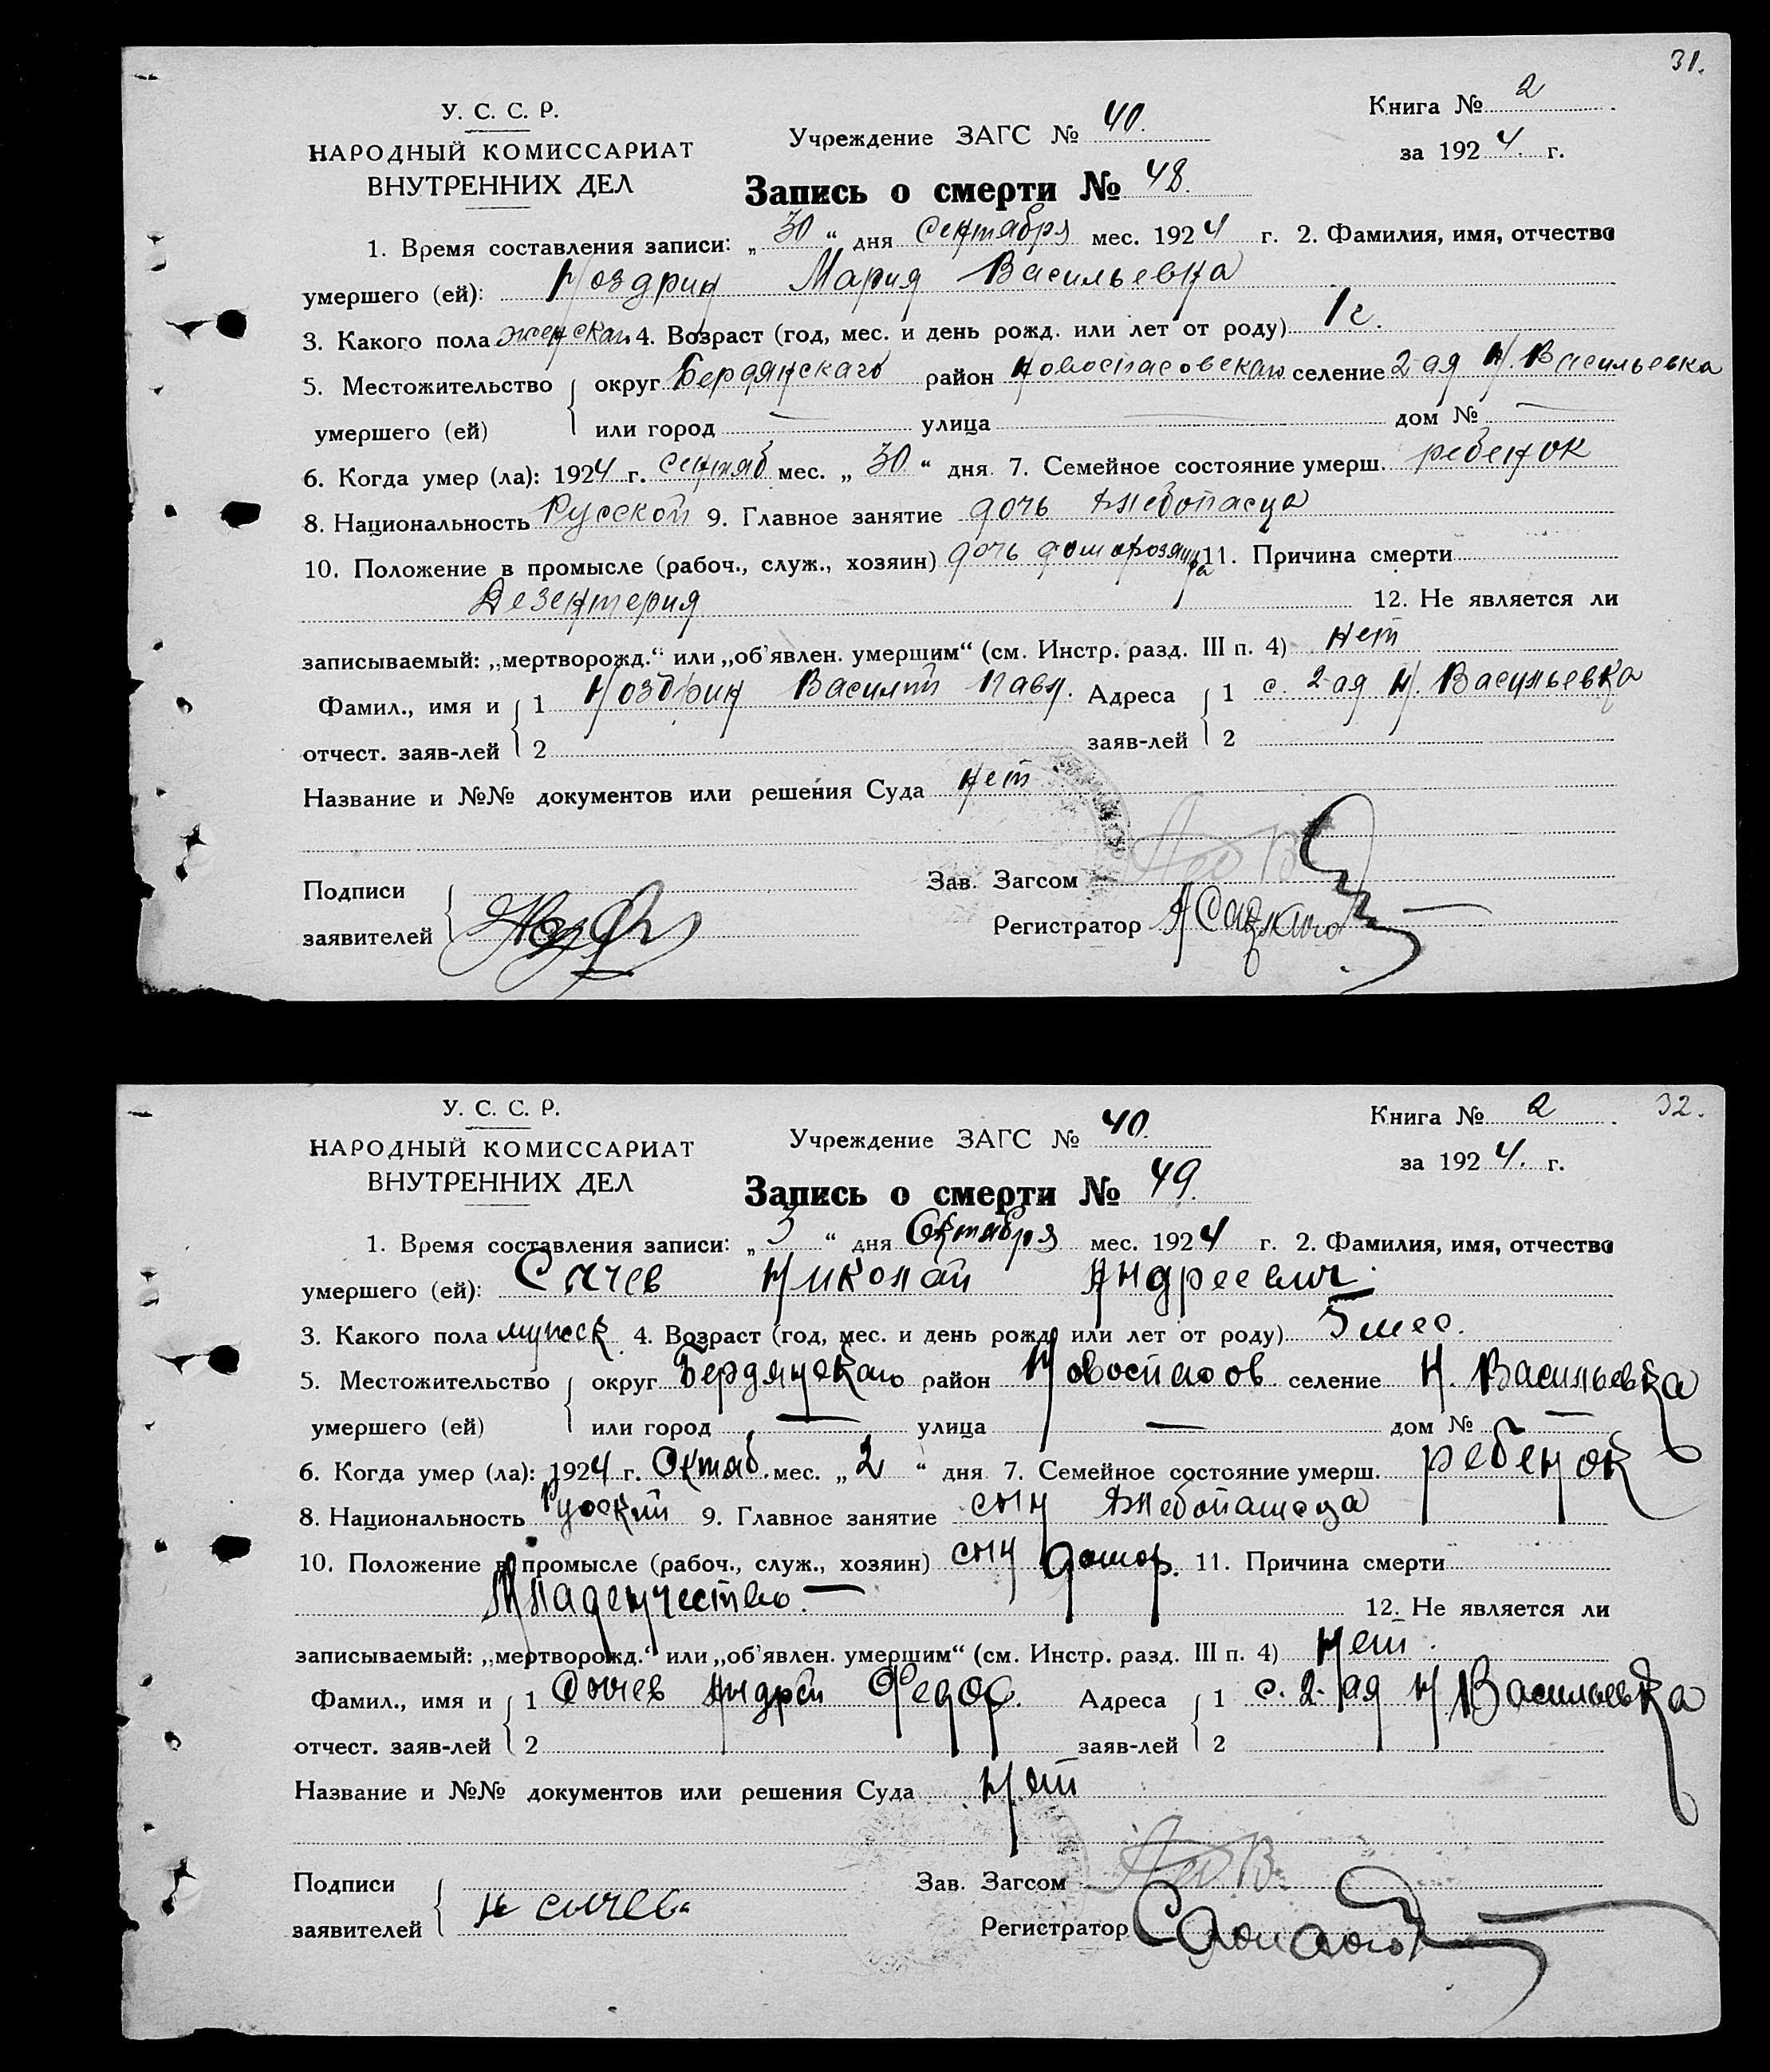 31.
У. С. С. Р.
НАРОДНЫЙ КОМИССАРИАТ
ВНУТРЕННИХ ДЕЛ
Учреждение ЗАГС № 40.
Книга № 2
за 1924. г.
Запись о смерти № 48.
1. Время составления записи: „30“ дня сентября мес. 1924 г. 2. Фамилия, имя, отчество
умершего (ей): Ноздрин Мария Васильевна
3. Какого пола женскаго 4. Возраст (год, мес. и день рожд. или лет от роду) 1 г.
5. Местожительство округ Бердянскаго район Новоспасовскаго селение 2-ая Н. Васильевка
умершего (ей) или город — улица — дом № —
6. Когда умер (ла): 1924 г. сентяб мес. „30“ дня 7. Семейное состояние умерш. ребенок
8. Национальность Русской 9. Главное занятие дочь хлебопасца
10. Положение в промысле (рабоч., служ., хозяин) дочь 11. Причина смерти
Дезентерия 12. Не является ли
записываемый: „мертворожд.“ или „об'явлен. умершим“ (см. Инстр. разд. III п. 4) нет
Фамил., имя и 1 Ноздрин Василий Павл. Адреса 1 с. 2-ая Н. Васильевка
отчест. заяв-лей 2 заяв-лей 2
Название и №№ документов или решения Суда нет
Подписи Зав. Загсом
заявителей Регистратор
32.
У. С. С. Р.
НАРОДНЫЙ КОМИССАРИАТ
ВНУТРЕННИХ ДЕЛ
Учреждение ЗАГС № 40.
Книга № 2
за 1924. г.
Запись о смерти № 49.
1. Время составления записи: „3“ дня Октября мес. 1924 г. 2. Фамилия, имя, отчество
умершего (ей): Сычев Николай Андреевич.
3. Какого пола мужск 4. Возраст (год, мес. и день рожд. или лет от роду) 5 мес.
5. Местожительство округ Бердянскаго район Новоспасов селение Н. Васильевка
умершего (ей) или город — улица — дом № —
6. Когда умер (ла): 1924 г. Октяб. мес. „2“ дня 7. Семейное состояние умерш. ребенок
8. Национальность Руский 9. Главное занятие сын хлебопашеца
10. Положение в промысле (рабоч., служ., хозяин) сын домор. 11. Причина смерти
Младенчество. — 12. Не является ли
записываемый: „мертворожд.“ или „об'явлен. умершим“ (см. Инстр. разд. III п. 4) Нет.
Фамил., имя и 1 Сычев Андрей Федор. Адреса 1 с. 2-ая Н Васильевка
отчест. заяв-лей 2 заяв-лей 2
Название и №№ документов или решения Суда Нет
Подписи Зав. Загсом
заявителей Н сычев Регистратор